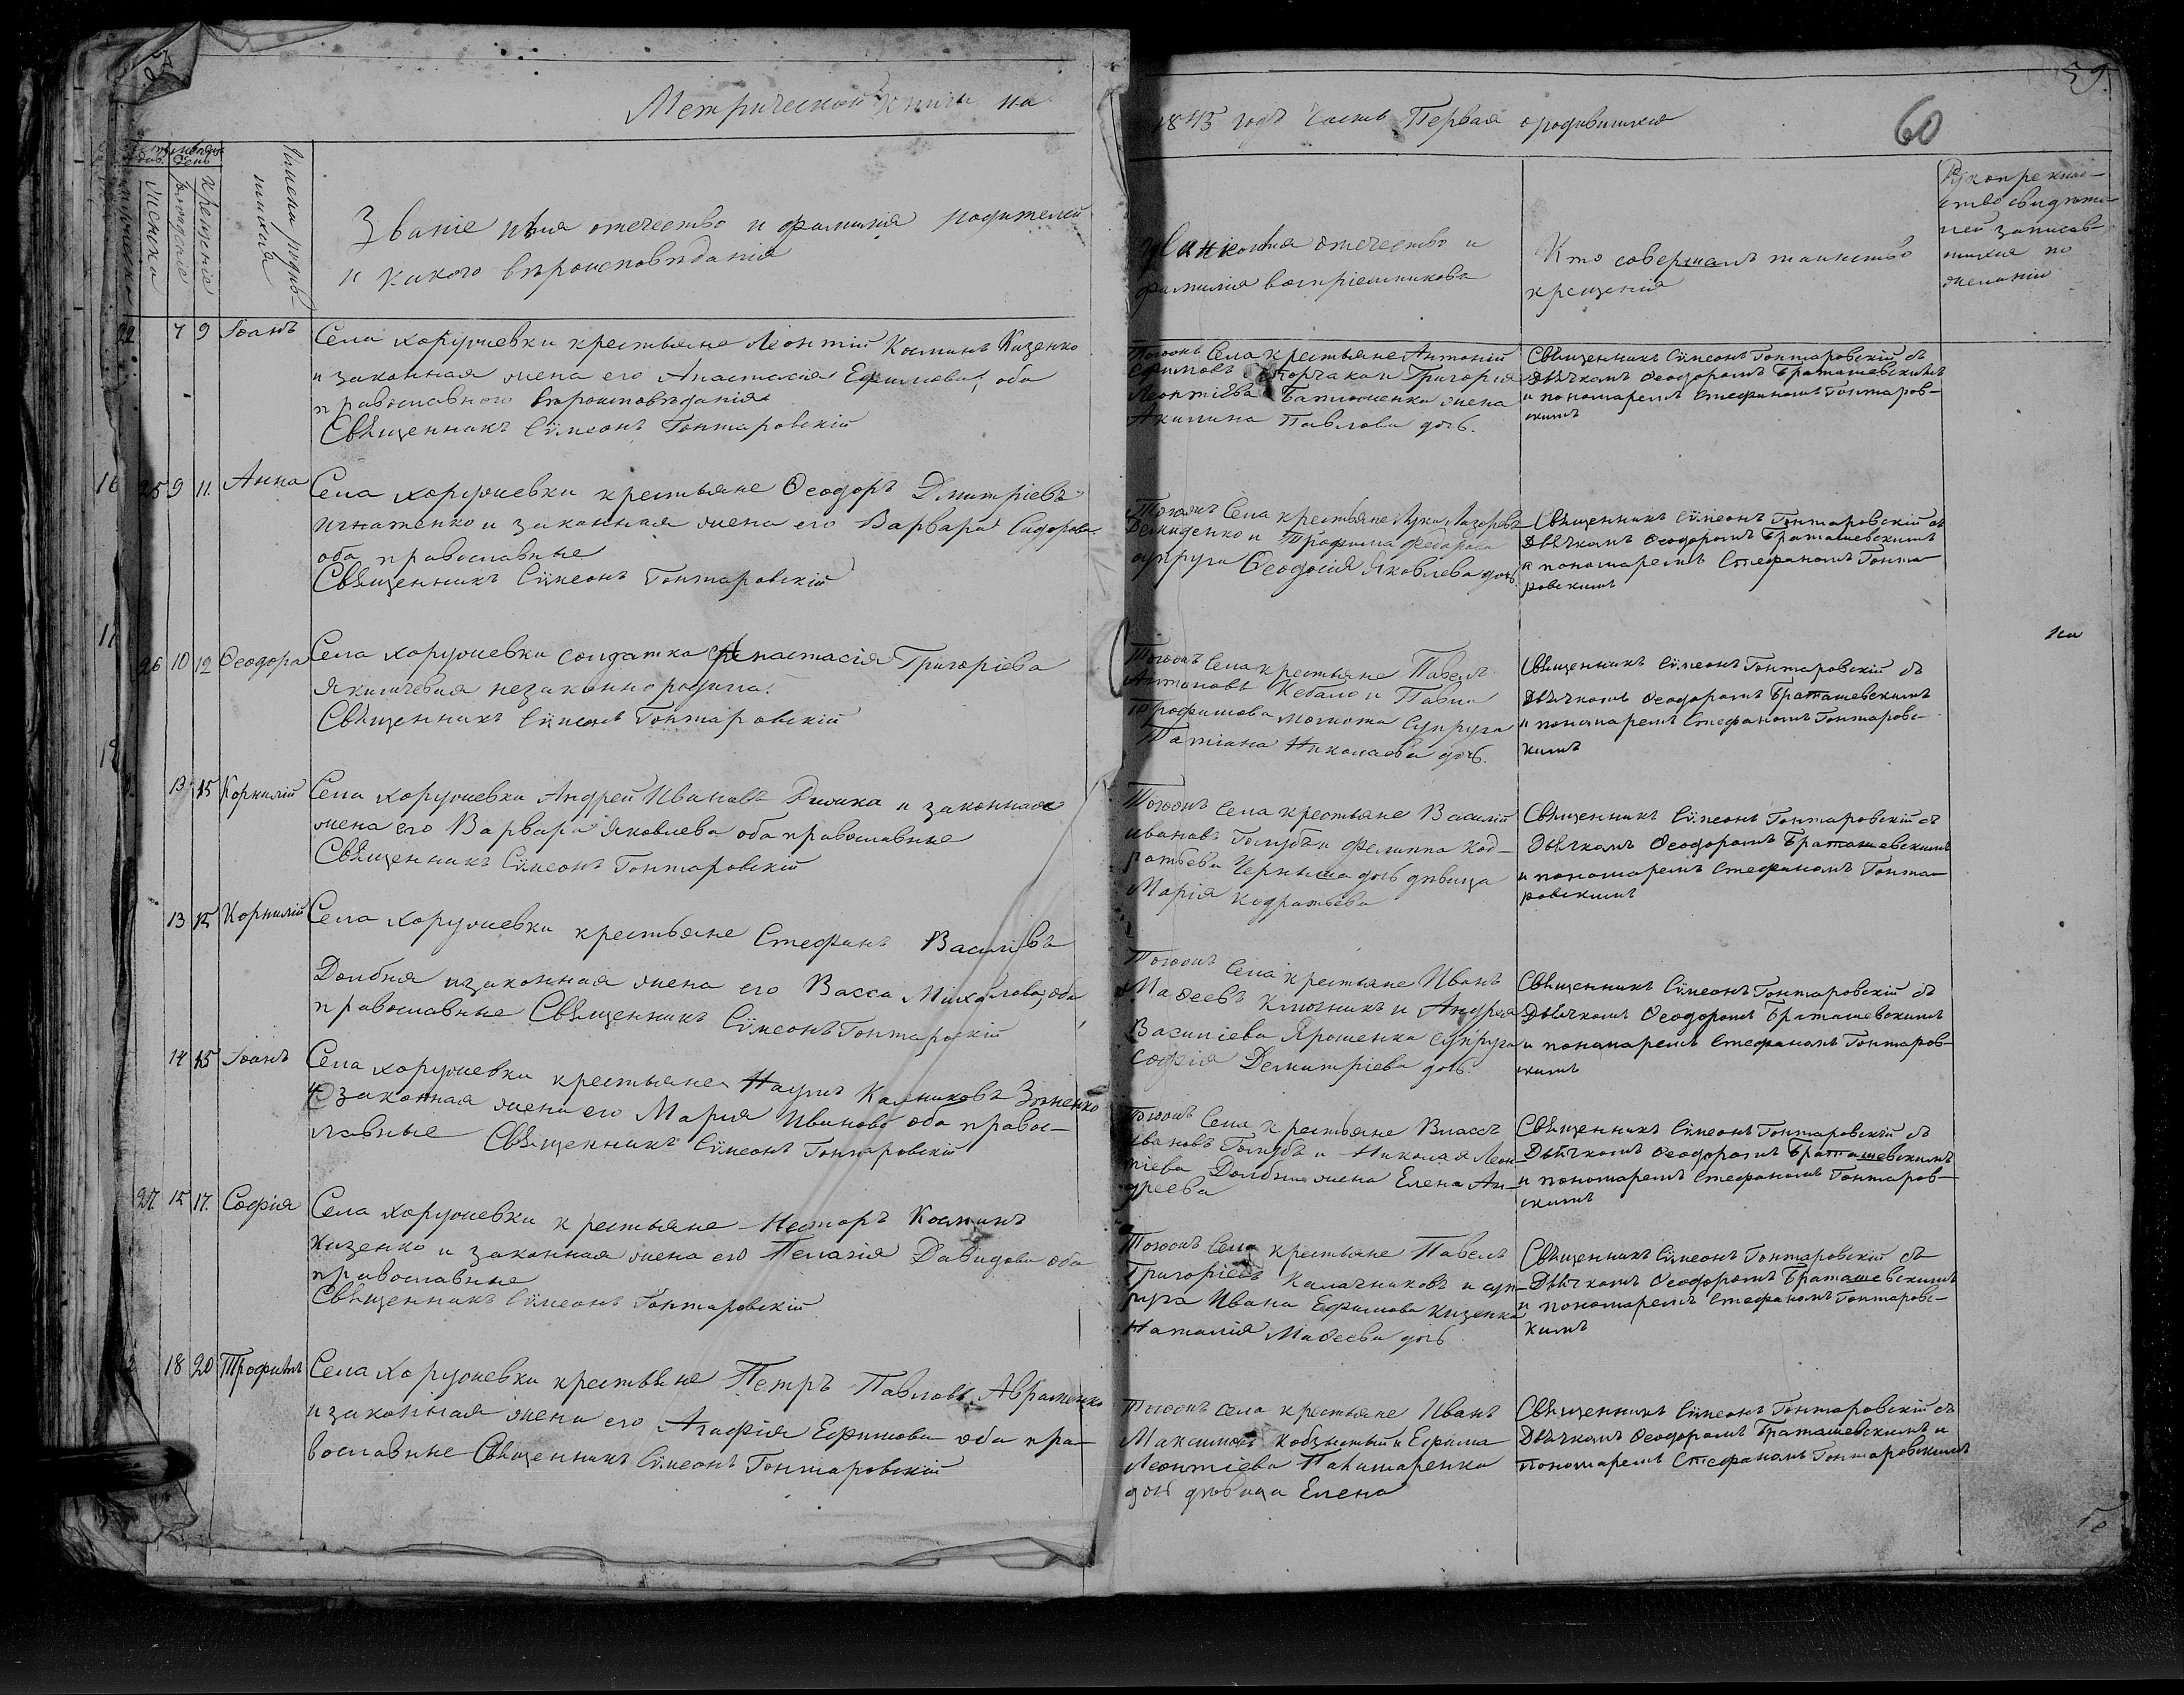 Метрической книги на
1843 годъ Часть Первая о родившихся
60
59.
рожденіе
крещеніе
Имена родив-
шихся
Званіе имя отечество и фамилія родителей
и какого вѣроисповѣданія
фамилія воспріемниковъ
Кто совершалъ таинство
крещенія
Рукоприклад-
ство свидѣте-
лей записав-
шихся по
желанію
22 7 9 Іоанъ
Села Хоружевки крестьяне Леонтій Косминъ Кизенко
и законная жена его Анастасія Ефимова, оба
православного вѣроисповѣданія
Священникъ Сѵмеонъ Гонтаровскій
Тогожъ Села крестьяне Антоній
Ефимовъ Корчака и Григорія
Леонтіева Батюшенка жена
Акилина Павлова дочь.
Священникъ Сѵмеонъ Гонтаровскій съ
Дьячкомъ Ѳеодоромъ Браташевскимъ
и пономаремъ Стефаномъ Гонтаров-
скимъ
16 25 9 11. Анна
Села Хоружевки крестьяне Ѳеодоръ Дмитріевъ
Игнатенко и законная жена его Варвара Сидорова
оба православные
Священникъ Сѵмеонъ Гонтаровскій
Тогожъ Села крестьяне Лука Лазоревъ
Демиденко и Трофима Федорова
супруга Ѳеодосія Яковлева дочь
Священникъ Сѵмеонъ Гонтаровскій съ
Дьячкомъ Ѳеодоромъ Браташевскимъ
и пономаремъ Стефаномъ Гонта-
ровскимъ
17 26 10 12 Ѳеодора
Села Хоружевки солдатка Анастасія Григоріева
незаконно родила.
Священникъ Сѵмеонъ Гонтаровскій
Тогожъ Села крестьяне Павелъ
Антоновъ Кебало и Павла
Трофимова супруга
Татіана Николаева дочь.
Священникъ Сѵмеонъ Гонтаровскій съ
Дьячкомъ Ѳеодоромъ Браташевскимъ
и пономаремъ Стефаномъ Гонтаровс-
кимъ
18
13 15 Корнилій
Села Хоружевки Андрей Ивановъ и законная
жена его Варвара Яковлева оба православные
Священникъ Сѵмеонъ Гонтаровскій
Тогожъ Села крестьяне Василій
Ивановъ Голубъ и Филиппа Код-
ратьева Черныша дочь дѣвица
Марія Кодратьева
Священникъ Сѵмеонъ Гонтаровскій съ
Дьячкомъ Ѳеодоромъ Браташевскимъ
и пономаремъ Стефаномъ Гонта-
ровскимъ
13 15 Корнилій
Села Хоружевки крестьяне Стефанъ Василіевъ
Долбня и законная жена его Васса Михайлова, оба
православные Священникъ Сѵмеонъ Гонтароскій
Тогожъ Села крестьяне Иванъ
Маѳеевъ Ключникъ и Андрея
Василіева Ярошенка супруга
Софія Демитріева дочь.
Священникъ Сѵмеонъ Гонтаровскій съ
Дьячкомъ Ѳеодоромъ Браташевскимъ
и пономаремъ Стефаномъ Гонтаров-
скимъ
14 15 Іоанъ
Села Хоружевки крестьяне Наумъ Калниковъ
и законная жена его Марія Иванова оба правос-
лавные Священникъ Сѵмеонъ Гонтаровскій
Тогожъ Села крестьяне Власъ
Ивановъ Голубъ и Николая Леон-
тіева Долбни жена Елена Ан-
дреева
Священникъ Сѵмеонъ Гонтаровскій съ
Дьячкомъ Ѳеодоромъ Браташевскимъ
и пономаремъ Стефаномъ Гонтаров-
скимъ
27. 15 17. Софія
Села Хоружевки крестьяне Несторъ Косминъ
Кизенко и законная жена его Пелагія Давидова оба
православные
Священникъ Сѵмеонъ Гонтаровскій
Тогожъ Села крестьяне Павелъ
Григоріевъ Калачниковъ и суп-
руга Ивана Ефимова Кизенка
Наталія Маѳеева дочь
Священникъ Сѵмеонъ Гонтаровскій съ
Дьячкомъ Ѳеодоромъ Браташевскимъ
и пономаремъ Стефаномъ Гонтаровс-
кимъ
18 20 Трофимъ
Села Хоружевки крестьяне Петръ Павловъ Авраменко
и законная жена его Агафія Ефимова оба пра-
вославные Священникъ Сѵмеонъ Гонтаровскій
Тогожъ села крестьяне Иванъ
Максимовъ и Ефима
Леонтіева
дочь дѣвица Елена
Священникъ Сѵмеонъ Гонтаровскій съ
Дьячкомъ Ѳеодоромъ Браташевскимъ и
пономаремъ Стефаномъ Гонтаровскимъ